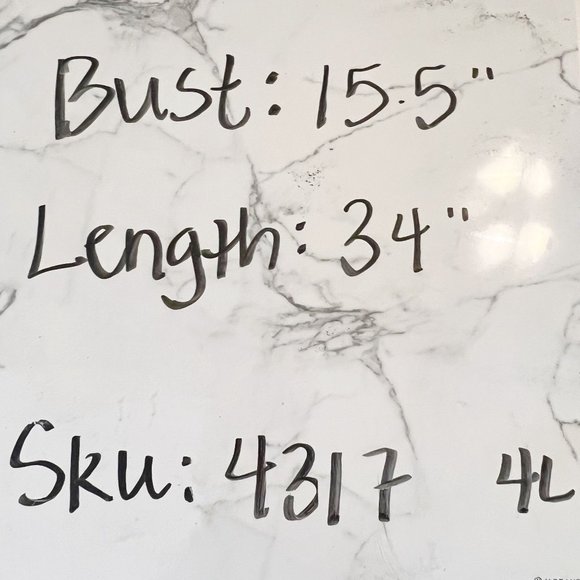 Bust: 15.5"
Length: 34"
Sku: 4317 4L